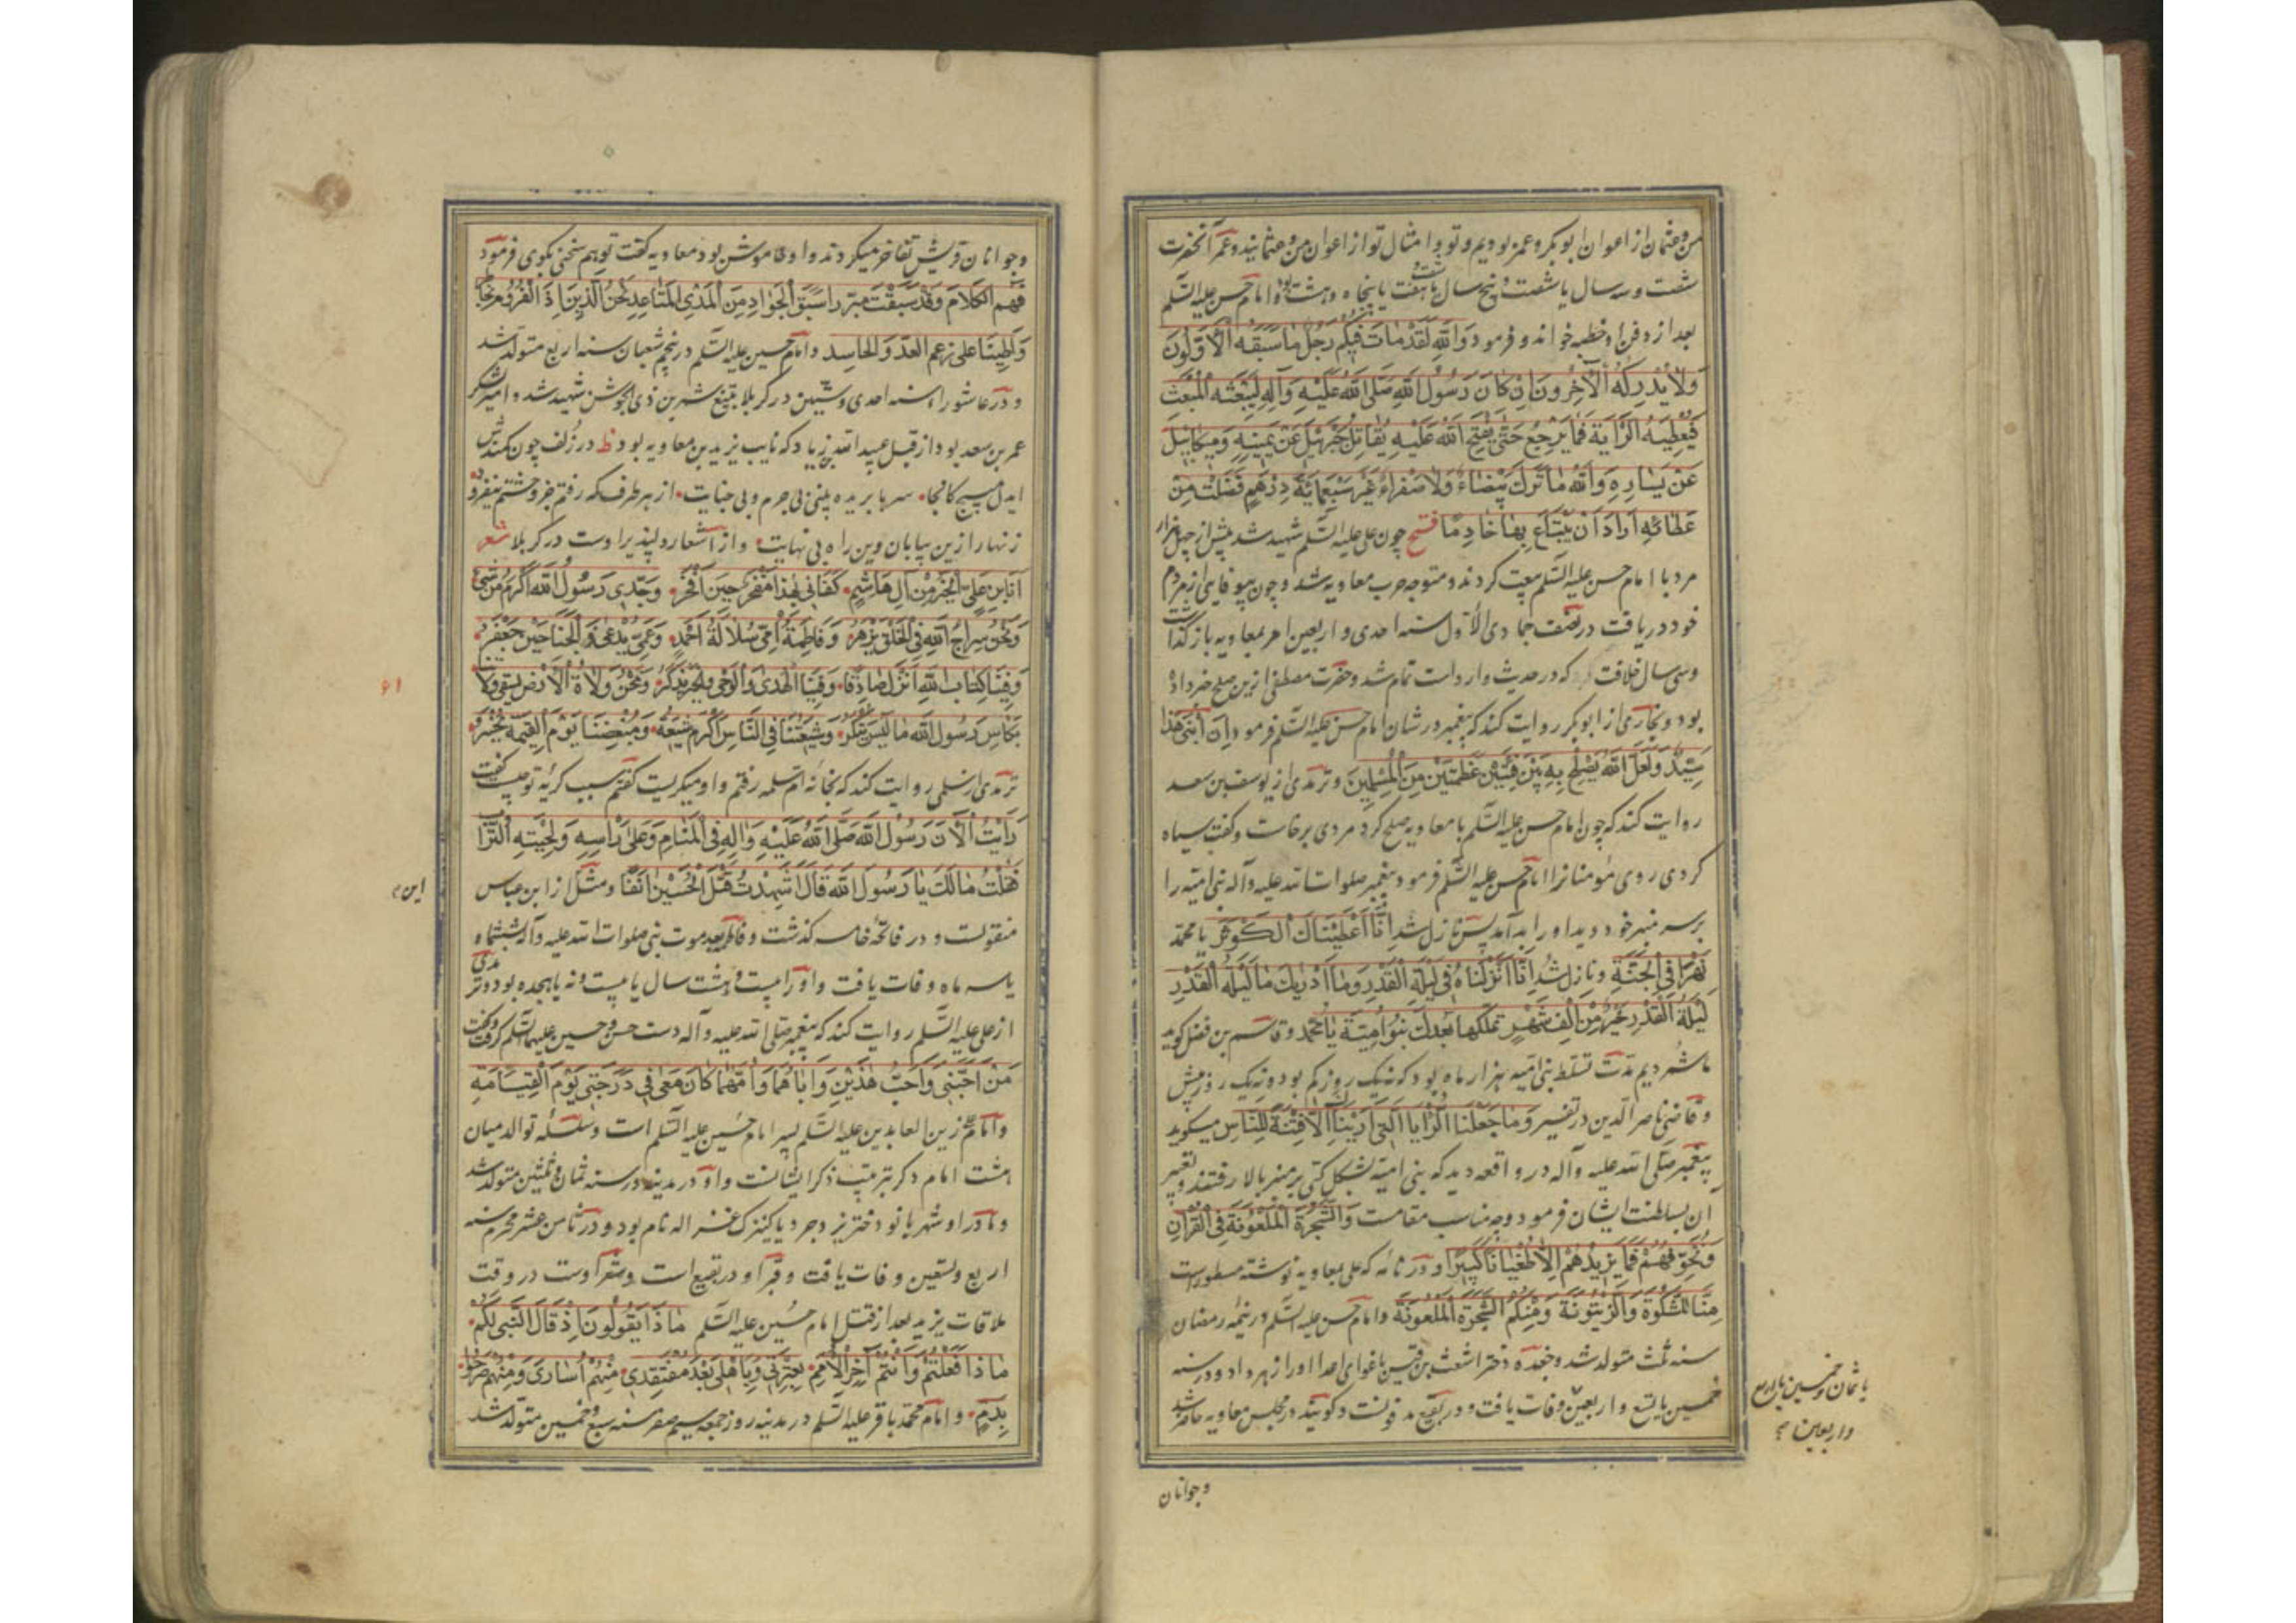 من و عثمان از اعوان ابوبکر و عمر بودیم و تو و امثال تو از اعوان من و عثمانید و عمر آنحضرت
شصت و سه سال یا شصت و پنج سال یا شصت یا پنجاه و هشت بود و امام حسن علیه السلم
بعد از دفن او خطبه خواند و فرمود وَاللهِ لَقَدْ مَاتَ فِیکُمْ رَجُلٌ مَا سَبَقَهُ الْاَوَّلُونَ
وَلَا یُدْرِکُهُ الْآخِرُونَ اِنْ کَانَ رَسُولُ اللهِ صَلَّی اللهُ عَلَیْهِ وَآلِهِ لَیَبْعَثُهُ الْمَبْعَثَ
فَیُعْطِیهِ الرَّایَةَ فَمَا یَرْجِعُ حَتّٰی یَفْتَحَ اللهُ عَلَیْهِ یُقَاتِلُ جَبْرَئِیلُ عَنْ یَمِینِهِ وَمِیکَائِیلُ
عَنْ یَسَارِهِ وَاللهِ مَا تَرَكَ بَیْضَاءَ وَلَا صَفْرَاءَ غَیْرَ سَبْعَمِائَةِ دِرْهَمٍ فَضَلَتْ مِنْ
عَطَائِهِ اَرَادَ اَنْ یَبْتَاعَ بِهَا خَادِمًا فتح چون علی علیه السلم شهید شد بیش از چهل هزار
مرد با امام حسن علیه السلم بیعت کردند و متوجه حرب معاویه شد و چون بیوفایی از مردم
خود دریافت در نصف جمادی الاول سنه احدی و اربعین امر بمعاویه باز گذاشت
و سی سال خلافت که در حدیث وارد است تمام شد و حضرت مصطفی ازین صلح خبر داده
بود و بخاری از ابوبکر روایت کند که پیغمبر در شان امام حسن علیه السلم فرمود اِنَّ ابْنِی هٰذَا
سَیِّدٌ وَلَعَلَّ اللهَ یُصْلِحُ بِهِ بَیْنَ فِئَتَیْنِ عَظِیمَتَیْنِ مِنَ الْمُسْلِمِینَ و ترمدی از یوسف بن سعد
روایت کند که چون امام حسن علیه السلم با معاویه صلح کرد مردی برخاست و گفت سیاه
کردی روی مؤمنانرا امام حسن علیه السلم فرمود پیغمبر صلوات الله علیه وآله بنی امیه را
بر سر منبر خود دید او را بد آمد پس نازل شد اِنَّا اَعْطَیْنَاكَ الْکَوْثَرَ یا محمد
نَهْرًا فِی الْجَنَّةِ و نازل شد اِنَّا اَنْزَلْنَاهُ فِی لَیْلَةِ الْقَدْرِ وَمَا اَدْرٰیكَ مَا لَیْلَةُ الْقَدْرِ
لَیْلَةُ الْقَدْرِ خَیْرٌ مِنْ اَلْفِ شَهْرٍ تَمْلِکُهَا بَعْدَكَ بَنُو اُمَیَّةَ یَا مُحَمَّد و قاسم بن فضل گوید
ما شمردیم مدت تسلط بنی امیه هزار ماه بود که نه یک روز کم بود و نه یک روز بیش
و قاضی ناصر الدین در تفسیر وَمَا جَعَلْنَا الرُّؤْیَا الَّتِی اَرَیْنَاكَ اِلَّا فِتْنَةً لِلنَّاسِ میگوید
پیغمبر صلی الله علیه وآله در واقعه دید که بنی امیه بشکل کپی بر منبر بالا رفتند و تعبیر
آن بسلطنت ایشان فرمود و چه مناسب مقامست وَالشَّجَرَةَ الْمَلْعُونَةَ فِی الْقُرْآنِ
وَنُخَوِّفُهُمْ فَمَا یَزِیدُهُمْ اِلَّا طُغْیَانًا کَبِیرًا و در نامه که علی بمعاویه نوشته مسطورست
مِنَّا الْمِشْکٰوةُ وَالزَّیْتُونَةُ وَمِنْکُمُ الشَّجَرَةُ الْمَلْعُونَةُ و امام حسن علیه السلم در نیمه رمضان
سنه ثلث متولد شد و جعده دختر اشعث بن قیس باغوای اعدا او را زهر داد و در سنه
خمسین یا تسع و اربعین وفات یافت و در بقیع مدفونست و گویند در مجلس معاویه حاضر شد
یا ثمان و خمسین یا اربع
و اربعین
وجوانان
وجوانان قریش تفاخر میکردند و او خاموش بود معاویه گفت تو هم سخنی بگوی فرمود
فِیمَ الْکَلَامُ وَقَدْ سَبَقْتُ مُبَرِّزًا سَبْقَ الْجَوَادِ مِنَ الْمَدَی الْمُتَبَاعِدِ نَحْنُ الَّذِینَ اِذَا الْقُرُومُ
وَطِینَا عَلٰی زَعْمِ الْعَدُوِّ وَالْحَاسِدِ و امام حسین علیه السلم در پنجم شعبان سنه اربع متولد شد
و در عاشوراء سنه احدی و ستین در کربلا بتیغ شمر بن ذی الجوشن شهید شد و امیر لشکر
عمر بن سعد بود از قبل عبید الله زیاد که نایب یزید بن معاویه بود در زلف چون کمندش
ایدل مپیچ کانجا سرها بریده بینی بی جرم و بی جنایت از هر طرف که رفتم جز وحشتم نیفزود
زنهار ازین بیابان وین راه بی نهایت و از اشعار دلپذیر اوست در کربلا شعر
اَنَا ابْنُ عَلِیِّ الْخَیْرِ مِنْ آلِ هَاشِمٍ کَفَانِی بِهٰذَا مَفْخَرٌ حِینَ اَفْخَرُ وَجَدِّی رَسُولُ اللهِ اَکْرَمُ مَنْ مَشٰی
وَنَحْنُ سِرَاجُ اللهِ فِی الْخَلْقِ یَزْهَرُ وَفَاطِمَةُ اُمِّی سُلَالَةُ اَحْمَدٍ وَعَمِّی یُدْعٰی ذُو الْجَنَاحَیْنِ جَعْفَرُ
وَفِینَا کِتَابُ اللهِ اُنْزِلَ صَادِقًا وَفِینَا الْهُدٰی وَالْوَحْیُ وَالْخَیْرُ یُذْکَرُ وَنَحْنُ وُلَاةُ الْاَرْضِ نَسْقِی وُلَاتَنَا
بِکَاسِ رَسُولِ اللهِ مَا لَیْسَ یُنْکَرُ وَشِیعَتُنَا فِی النَّاسِ اَکْرَمُ شِیعَةٍ وَمُبْغِضُنَا یَوْمَ الْقِیٰمَةِ یَخْسَرُ
ترمدی از سلمی روایت کند که بخانه ام سلمه رفتم و او میگریست گفتم سبب گریه تو چیست گفت
رَاَیْتُ الْآنَ رَسُولَ اللهِ صَلَّی اللهُ عَلَیْهِ وَآلِهِ فِی الْمَنَامِ وَعَلٰی رَاْسِهِ وَلِحْیَتِهِ التُّرَابُ
فَقُلْتُ مَا لَكَ یَا رَسُولَ اللهِ قَالَ شَهِدْتُ قَتْلَ الْحُسَیْنِ اٰنِفًا و مثل از ابن عباس
منقولست و در فاتحه خامسه گذشت و فاطمه بعد موت نبی صلوات الله علیه وآله بششماه
یا سه ماه وفات یافت و او را بیست و هشت سال یا بیست و نه یا هجده بود و ترمدی
از علی علیه السلم روایت کند که پیغمبر صلی الله علیه وآله دست حسن و حسین علیهما السلم گرفت و گفت
مَنْ اَحَبَّنِی وَاَحَبَّ هٰذَیْنِ وَاَبَاهُمَا وَاُمَّهُمَا کَانَ مَعِی فِی دَرَجَتِی یَوْمَ الْقِیَامَةِ
و امام زین العابدین علیه السلم پسر امام حسین علیه السلم است و سلسله توالد میان
هشت امام دگر بترتیب ذکر ایشانست و او در مدینه در سنه ثمان و ثلثین متولد شد
و مادر او شهربانو دختر یزدجرد یا کنیزک غزاله نام بود و در ثامن عشر محرم سنه
اربع و تسعین وفات یافت و قبر او در بقیع است و شعر اوست در وقت
ملاقات یزید بعد از قتل امام حسین علیه السلم مَاذَا تَقُولُونَ اِذْ قَالَ النَّبِیُّ لَکُمْ
مَاذَا فَعَلْتُمْ وَاَنْتُمْ آخِرُ الْاُمَمِ بِعِتْرَتِی وَبِاَهْلِی بَعْدَ مُفْتَقَدِی مِنْهُمْ اُسَارٰی وَمِنْهُمْ ضُرِّجُوا
بِدَمٍ و امام محمد باقر علیه السلم در مدینه روز جمعه سیم صفر سنه سبع و خمسین متولد شد
۶۱
این